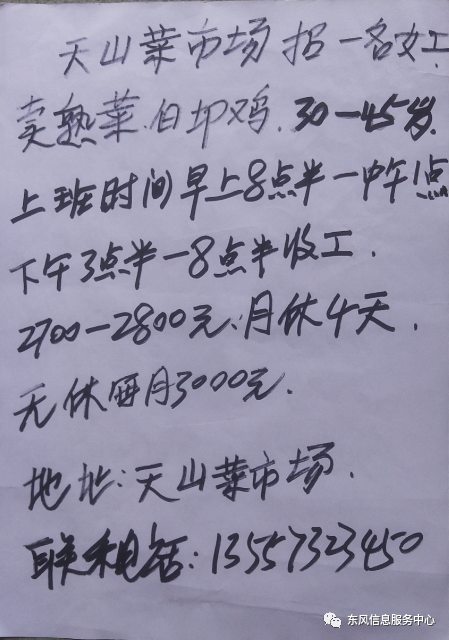 天山菜市场招一名女工.
卖熟菜.白切鸡.30一45岁.
上班时间早上8点半一中午1点
下午3点半一8点半收工.
2700一2800元:月休4天.
无休每月3000元.
地址:天山菜市场.
联系电话:13557323450
东风信息服务中心